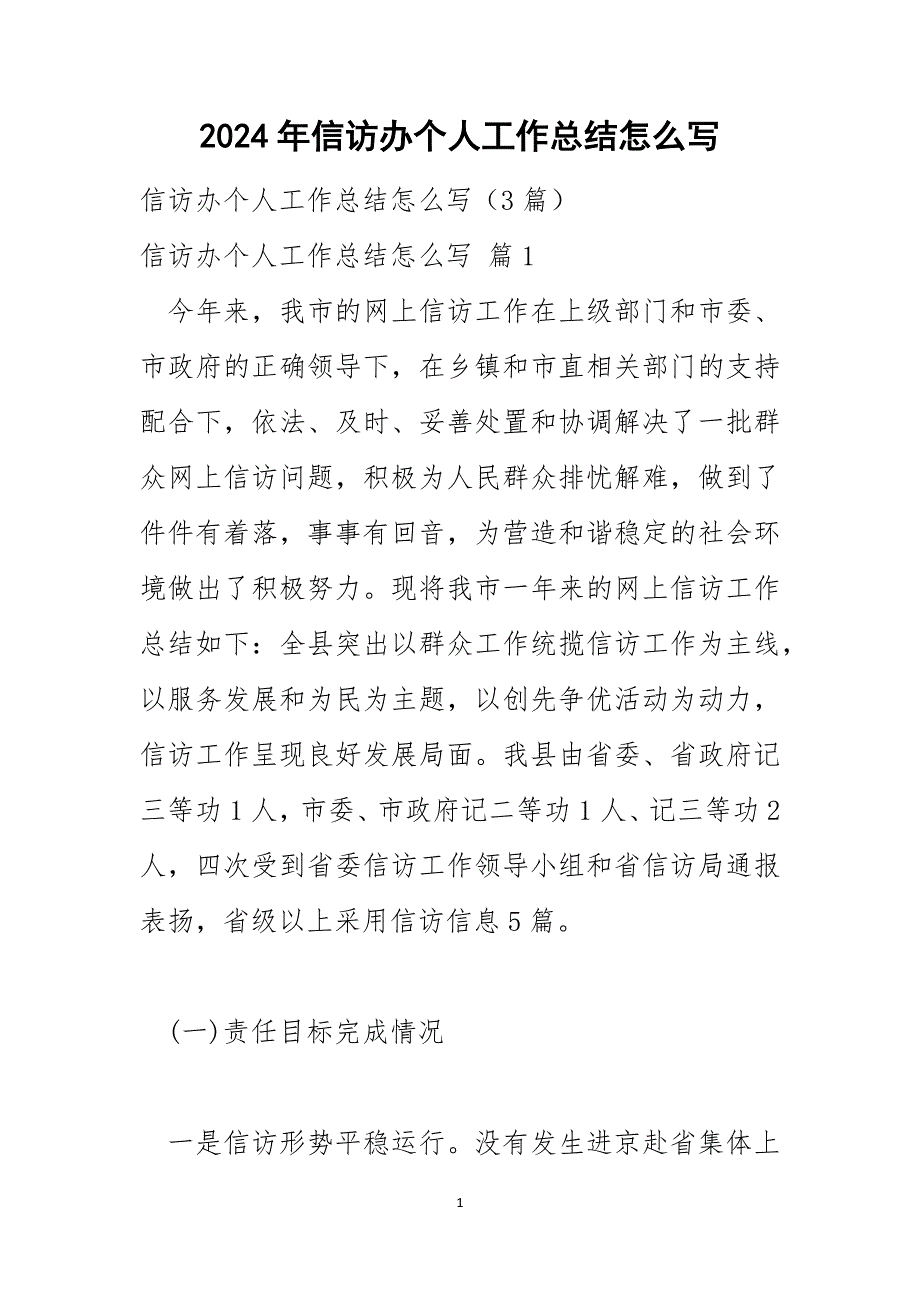 2024年信访办个人工作总结怎么写
信访办个人工作总结怎么写（3篇）
信访办个人工作总结怎么写 篇1
今年来，我市的网上信访工作在上级部门和市委、
市政府的正确领导下，在乡镇和市直相关部门的支持
配合下，依法、及时、妥善处置和协调解决了一批群
众网上信访问题，积极为人民群众排忧解难，做到了
件件有着落，事事有回音，为营造和谐稳定的社会环
境做出了积极努力。现将我市一年来的网上信访工作
总结如下：全县突出以群众工作统揽信访工作为主线，
以服务发展和为民为主题，以创先争优活动为动力，
信访工作呈现良好发展局面。我县由省委、省政府记
三等功1人，市委、市政府记二等功1人、记三等功2
人，四次受到省委信访工作领导小组和省信访局通报
表扬，省级以上采用信访信息5篇。
(一)责任目标完成情况
一是信访形势平稳运行。没有发生进京赴省集体上
1